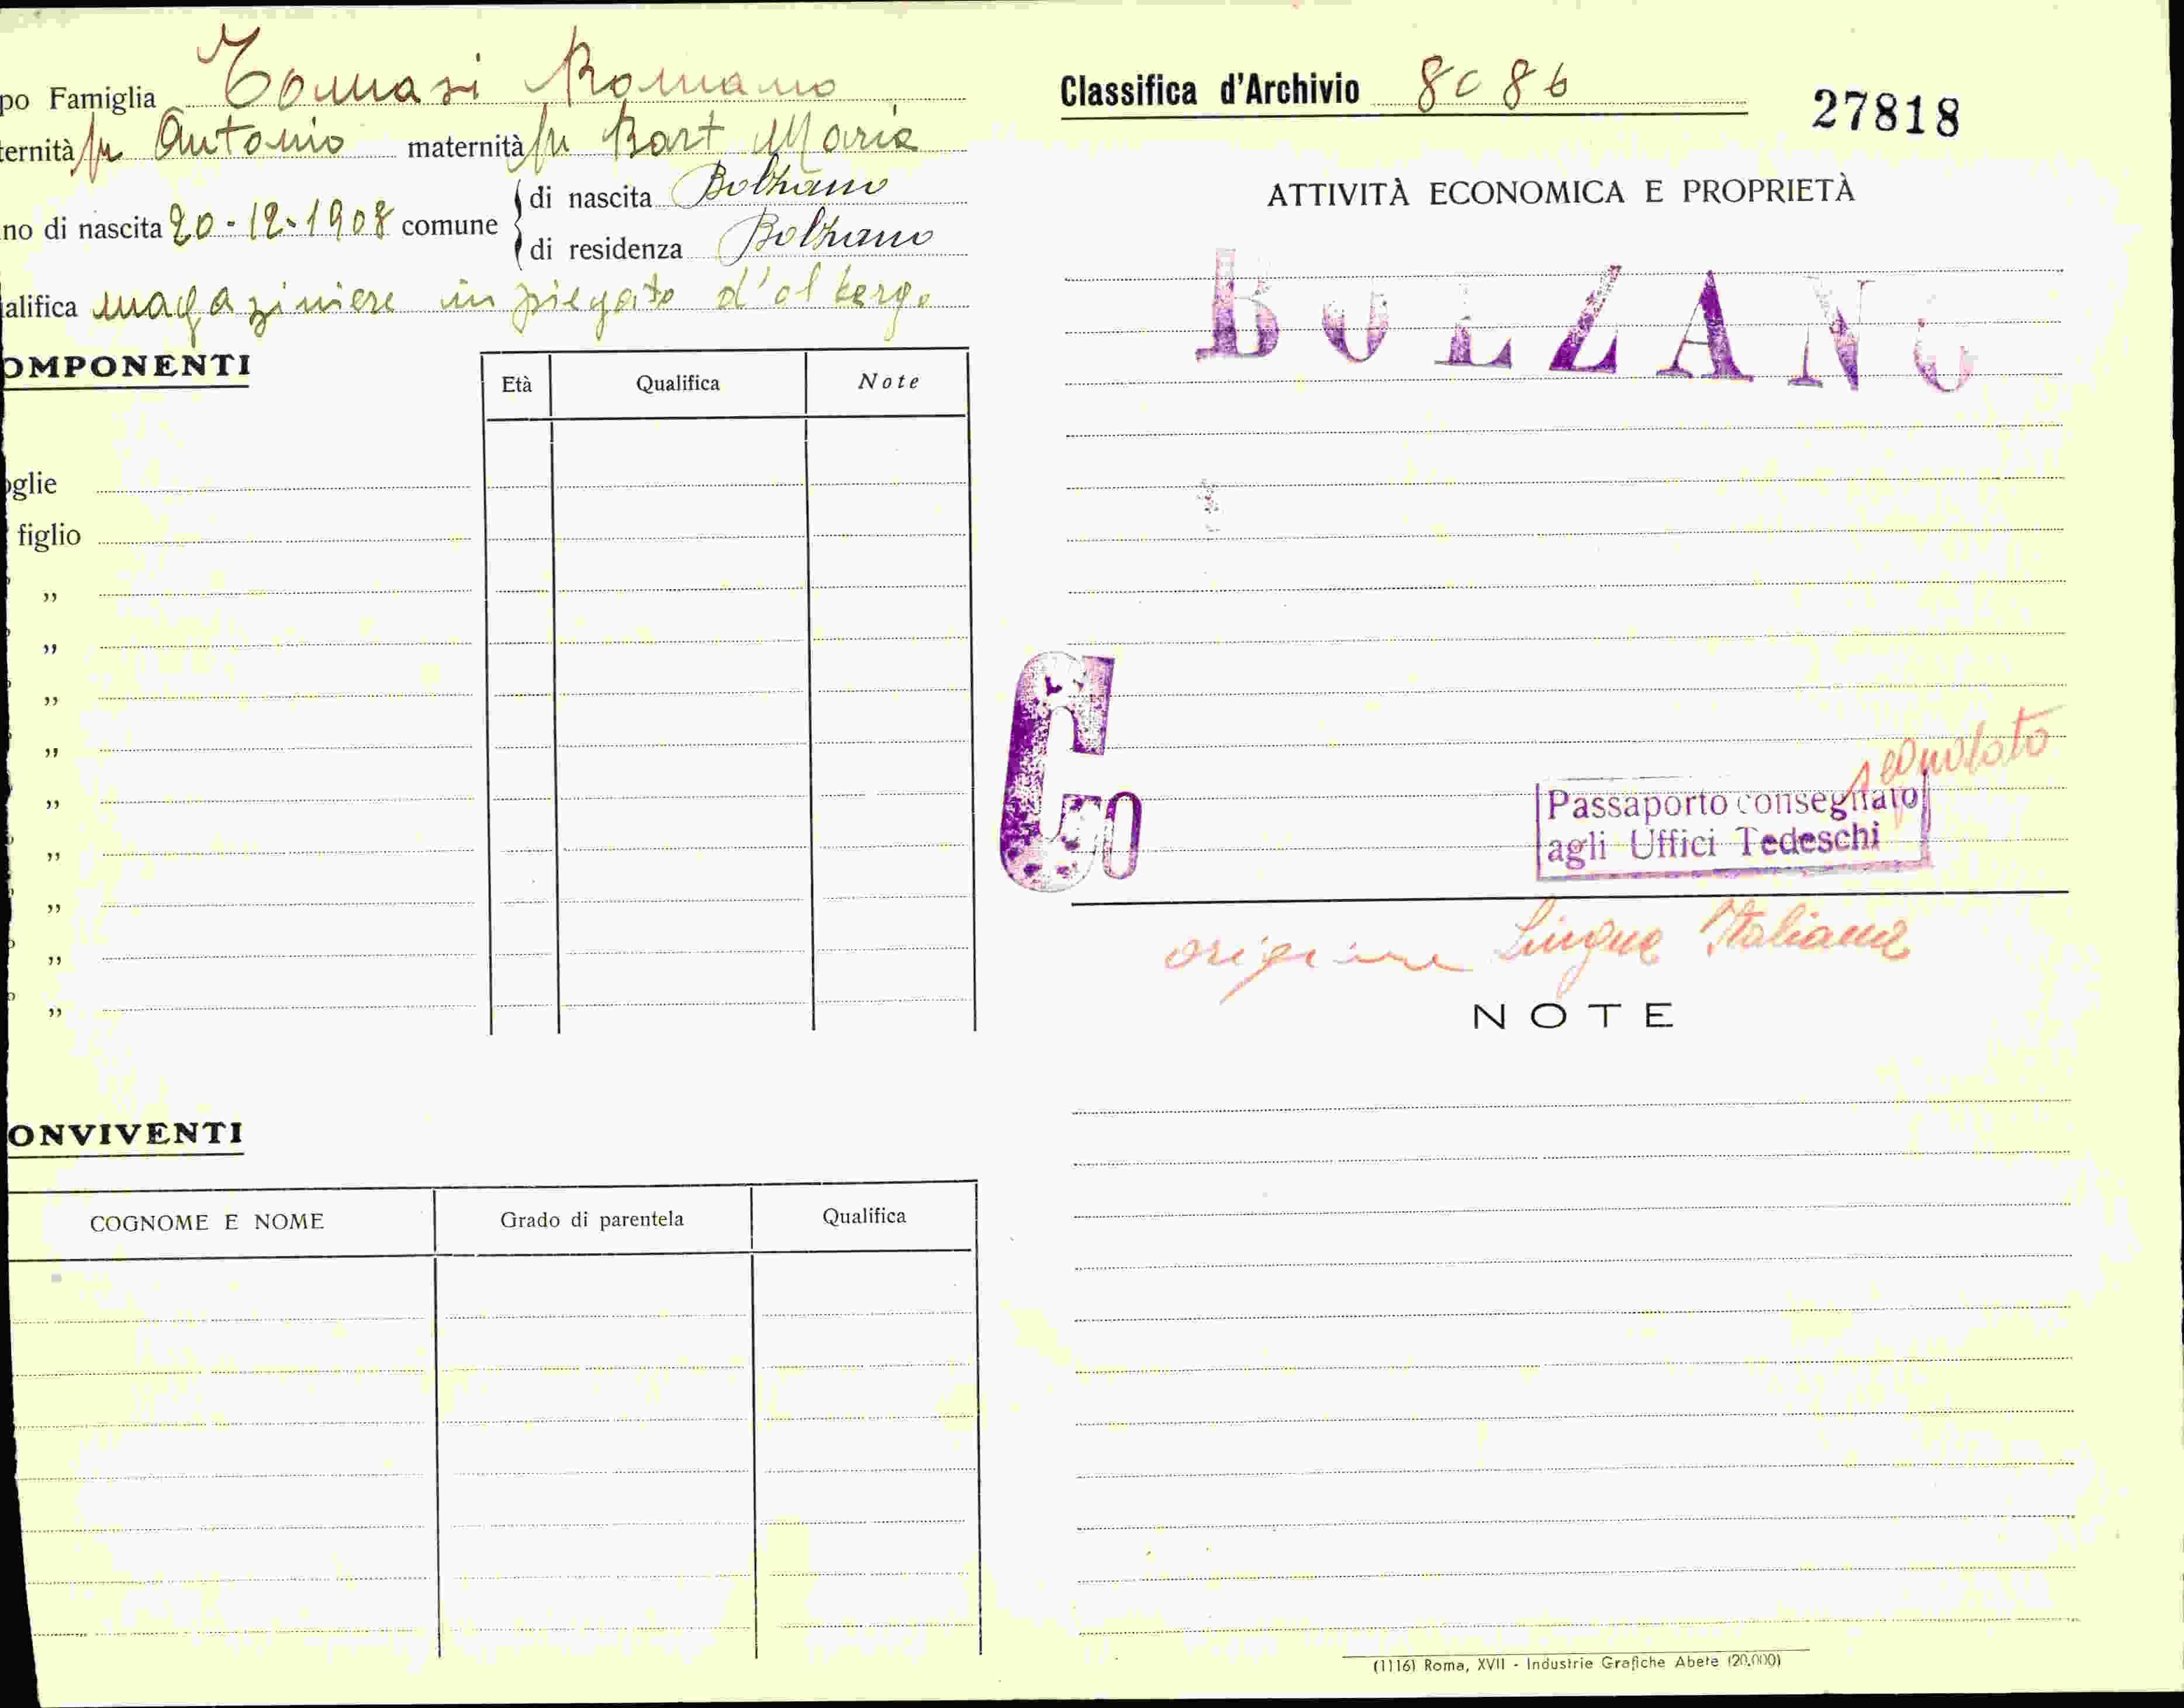 po Famiglia Tomasi Romano
ternità fu Antonio maternità fu Bart Maria
no di nascita 20-12-1908 comune
di nascita Bolzano
di residenza Bolzano
alifica magaziniere impiegato d'albergo
OMPONENTI
Età Qualifica Note
oglie
figlio
”
”
”
”
”
”
”
”
”
ONVIVENTI
COGNOME E NOME Grado di parentela Qualifica
Classifica d'Archivio 8c86
27818
ATTIVITÀ ECONOMICA E PROPRIETÀ
BOLZANO
Passaporto consegnato
agli Uffici Tedeschi
origine Lingua Italiana
NOTE
(1116) Roma, XVII - Industrie Grafiche Abete (20.000)